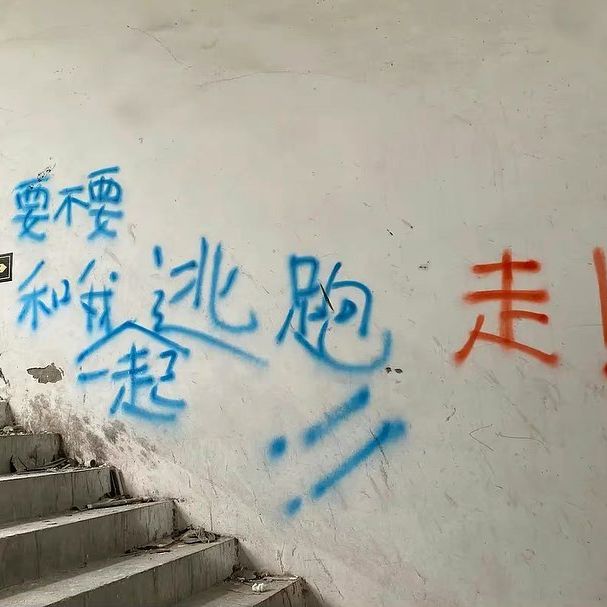 要不要
和我一起逃跑！！
走！